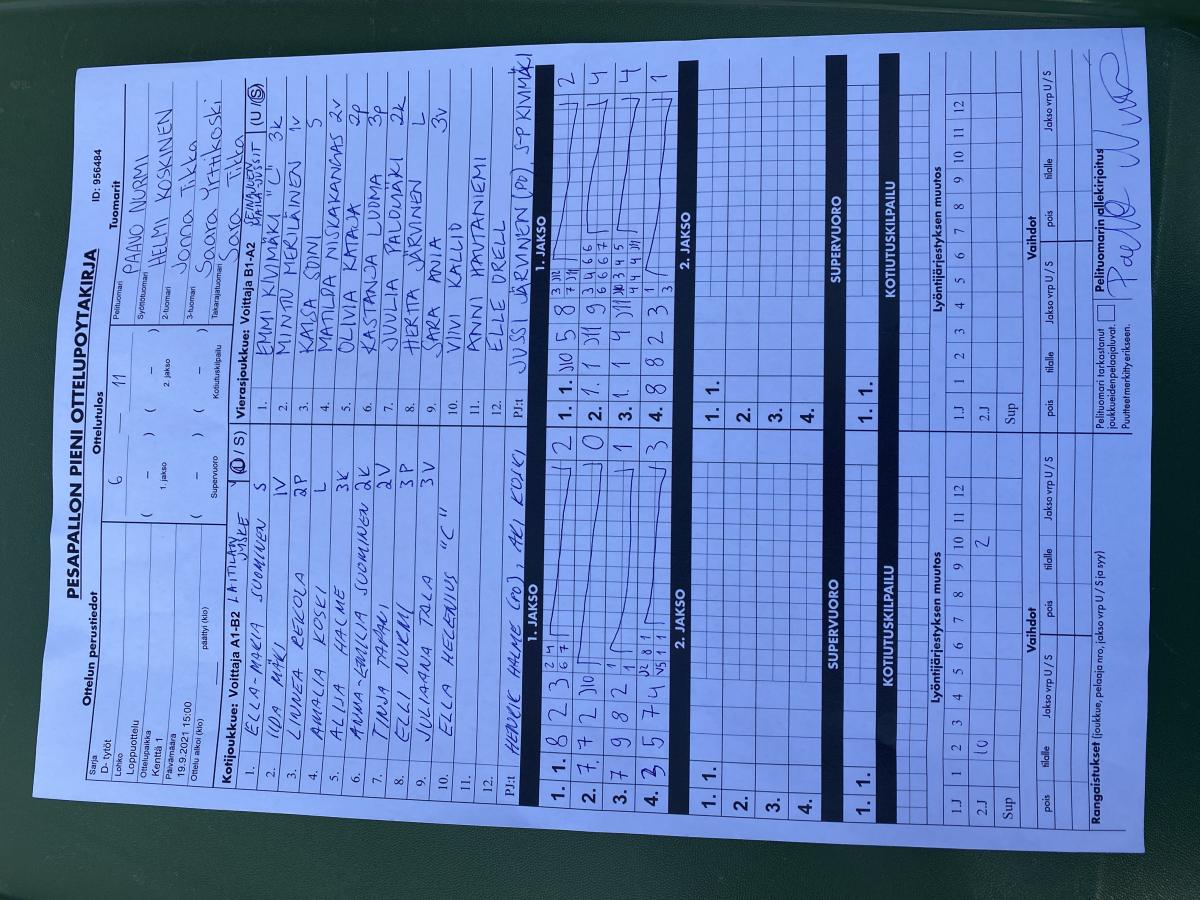 PESÄPALLON PIENI OTTELUPÖYTÄKIRJA
ID: 956484
Ottelun perustiedot
Sarja
D- tytöt
Lohko
Loppuottelu
Ottelupaikka
Kenttä 1
Päivämäärä
19.9.2021 15:00
Ottelu alkoi (klo)
päättyi (klo)
Ottelutulos
6 11
( – ) ( – )
1. jakso 2. jakso
( – ) ( – )
Supervuoro Kotiutuskilpailu
Tuomarit
Pelituomari PAAVO NURMI
Syöttötuomari HELMI KOSKINEN
2-tuomari Jonna Tikka
3-tuomari Saara Yrttikoski
Takarajatuomari Sara Tikka
Kotijoukkue: Voittaja A1-B2 LAITILAN JYSKE (U / S)
1. ELLA-MARIA SUOMINEN S
2. IIDA MÄKI 1V
3. LINNEA REKOLA 2P
4. AMALIA KOSKI L
5. ALISA HALME 3K
6. ANNA-EMILIA SUOMINEN 2K
7. TINJA TAKALI 2V
8. ELLI NURMI 3P
9. JULIAANA TALA 3V
10. ELLA HELENIUS "C"
11.
12.
PJ:t HENRIK HALME (PJ), AKI KOSKI
Vierasjoukkue: Voittaja B1-A2 SEINÄJOEN MAILA-JUSSIT (U / S)
1. EMMI KIVIMÄKI "C" 3K
2. MINTTU MERILÄINEN 1V
3. KAISA SOINI S
4. MATILDA NISKAKANGAS 2V
5. OLIVIA KATAJA 2P
6. KASTANJA LUOMA 3P
7. JUULIA PALOMÄKI 2K
8. HERTTA JÄRVINEN L
9. SARA ANIA 3V
10. VIIVI KALLIO
11. ANNI HAUTANIEMI
12. ELLE DRELL
PJ:t JUSSI JÄRVINEN (PJ), S-P KIVIMÄKI
1. JAKSO
1. JAKSO
1. 1. 8 2 3 2 4 6 7 2
1. 1. J10 5 8 3 J12 7 J11 2
2. 7 7 2 J10 0
2. 1 1 J11 9 3 4 6 6 6 6 6 7 4
3. 7 9 8 2 1 1 1
3. 1 1 4 J11 4
4. 3 5 7 4 J2 8 1 3
4. 8 8 2 3 1 3 1
2. JAKSO
2. JAKSO
1. 1.
1. 1.
2.
2.
3.
3.
4.
4.
SUPERVUORO
SUPERVUORO
1. 1.
1. 1.
KOTIUTUSKILPAILU
KOTIUTUSKILPAILU
Lyöntijärjestyksen muutos
Lyöntijärjestyksen muutos
1.J 1 2 3 4 5 6 7 8 9 10 11 12
1.J 1 2 3 4 5 6 7 8 9 10 11 12
2.J 10 2
2.J
Sup
Sup
Vaihdot
Vaihdot
pois tilalle Jakso vrp U / S pois tilalle Jakso vrp U / S
pois tilalle Jakso vrp U / S pois tilalle Jakso vrp U / S
Rangaistukset (joukkue, pelaaja nro, jakso vrp U / S ja syy)
Pelituomari tarkastanut
joukkueiden pelaajaluvat.
Puutteet merkitty erikseen.
Pelituomarin allekirjoitus